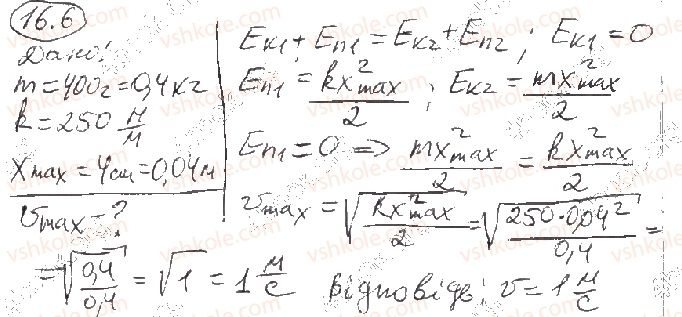 16.6
Дано:
m=400г=0,4кг
k=250 Н/м
x_max=4см=0,04м
v_max-?
E_к1+E_п1=E_к2+E_п2; E_к1=0
E_п1=kx²_max/2; E_к2=mx²_max/2
E_п1=0 => mx²_max/2=kx²_max/2
v_max=√(kx²_max/2)=√(250·0,04²/0,4)=
=√(0,4/0,4)=√1=1 м/с Відповідь: v=1 м/с